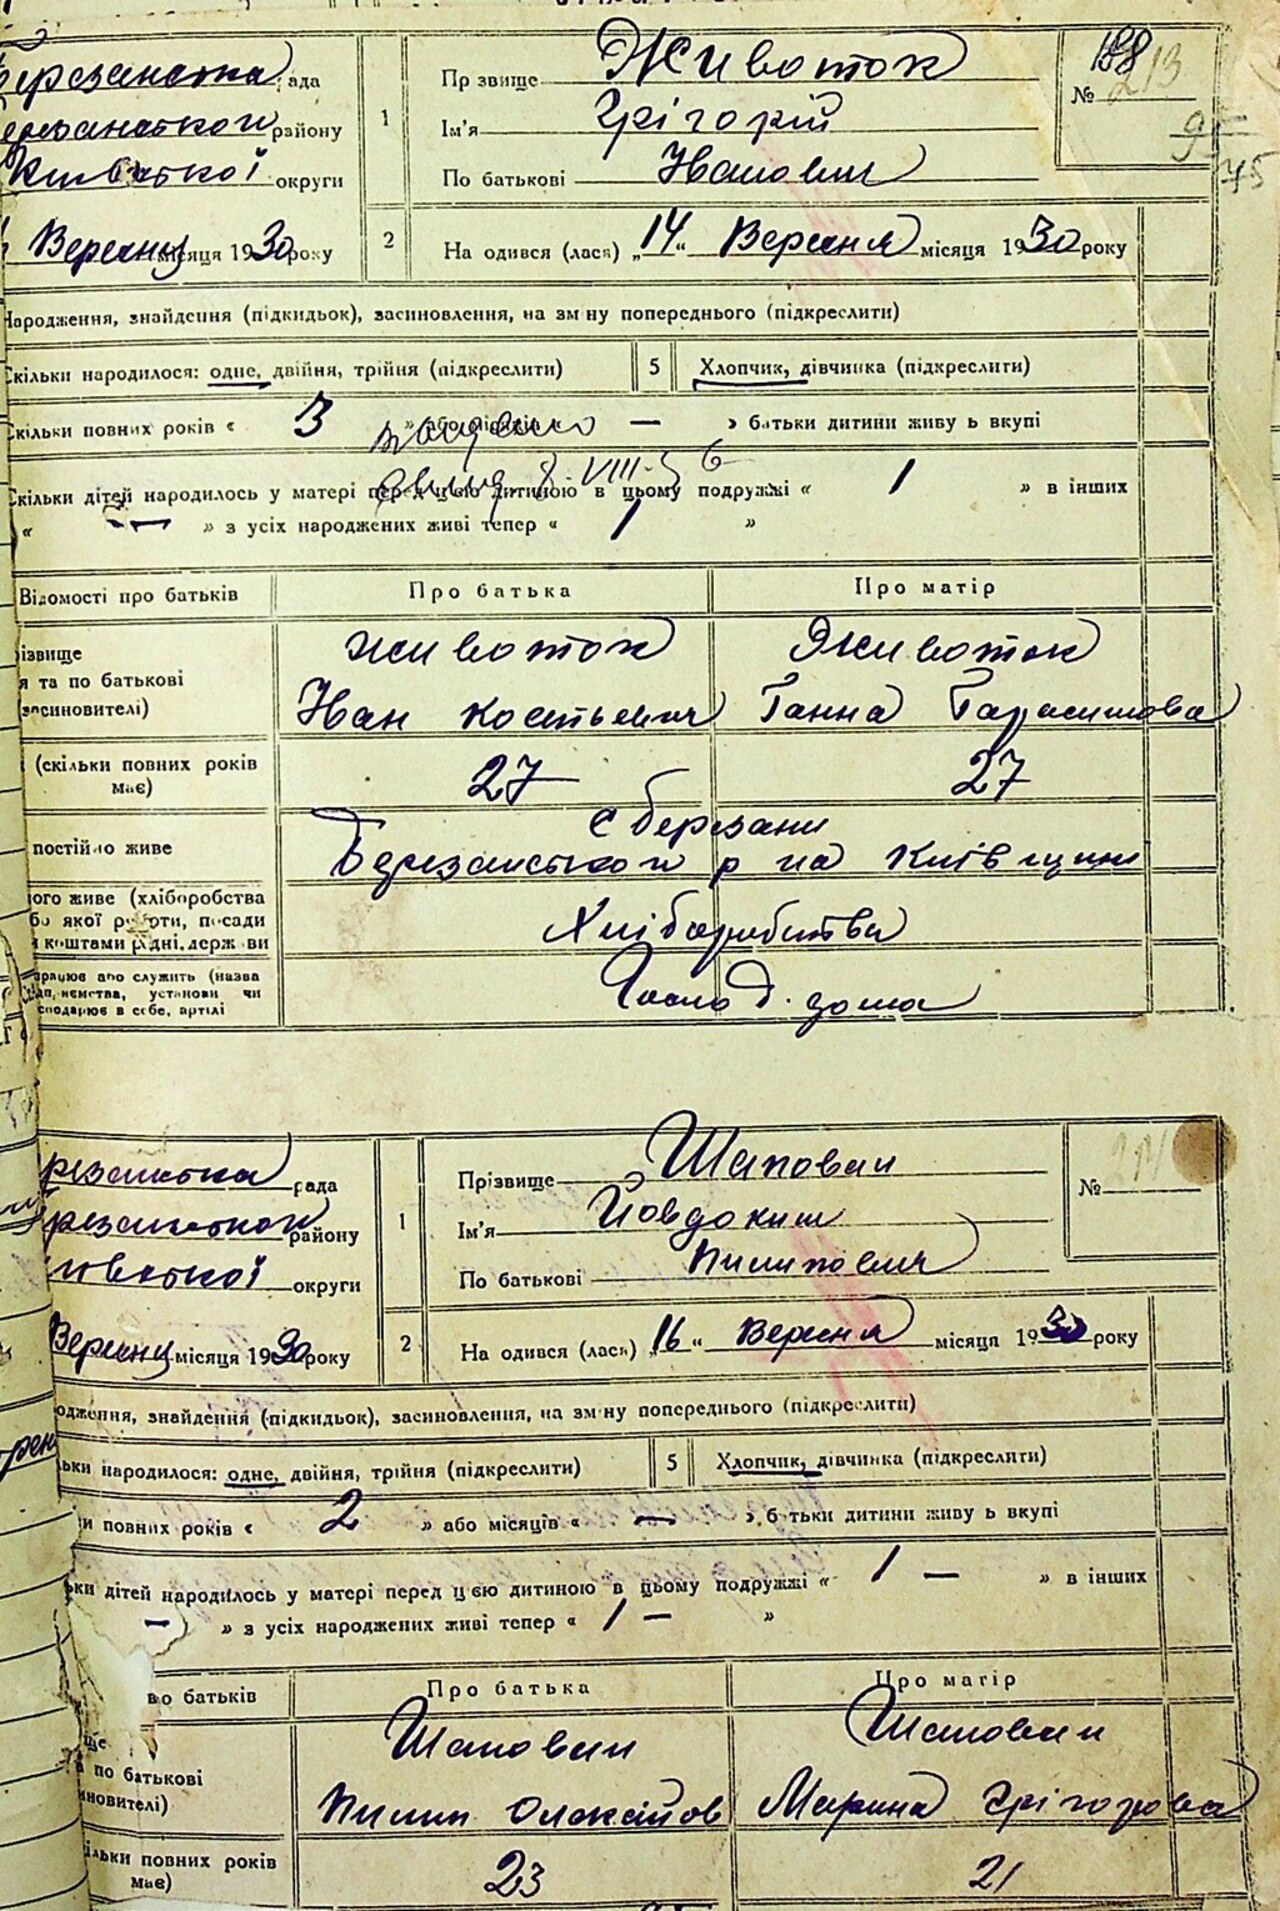 Березанська рада
Березанского району
Київської округи
Вересня місяця 1930 року
1
Пр звище Животок
Ім'я Грігорій
По батькові Іванович
№ 188 213
95
75
2
На одився (лася) „14“ Вересня місяця 1930 року
Народження, знайдення (підкидьок), засиновлення, на зм ну попереднього (підкреслити)
Скільки народилося: одне, двійня, трійня (підкреслити)
5
Хлопчик, дівчинка (підкреслити)
Скільки повних років « 3 » або місяців « — » батьки дитини живу ь вкупі
VIII-56
Скільки дітей народилось у матері перед цією дитиною в цьому подружжі « 1 » в інших
« — » з усіх народжених живі тепер « 1 »
Відомості про батьків
Про батька
Про матір
різвище
я та по батькові
засиновителі)
Животок
Іван Костьевич
Животок
Ганна Гарасимова
(скільки повних років
має)
27
27
постійно живе
с Березани
Березанського р на Київщини
ого живе (хліборобства
бо якої роботи, посади
коштами рідні, держ ви
Хліборобства
рацює або служить (назва
підп, иємства, установи чи
сподарює в себе, артілі
Госпо д. дома
резанська рада
резанского району
ївської округи
Вересня місяця 1930 року
1
Прізвище Шаповал
Ім'я Йовдоким
По батькові Пилипович
№ 214
2
На одився (лась) „16“ Вересня місяця 1930 року
одження, знайдення (підкидьок), засиновлення, на зм ну попереднього (підкреслити)
ьки народилося: одне, двійня, трійня (підкреслити)
5
Хлопчик, дівчинка (підкреслити)
и повних років « 2 » або місяців « — » б тьки дитини живу ь вкупі
ьки дітей народилось у матері перед цією дитиною в цьому подружжі « 1 — » в інших
— » з усіх народжених живі тепер « 1 — »
ро батьків
Про батька
Про матір
ще
а по батькові
иновителі)
Шаповал
Пилип Олексійов
Шаповал
Марина Грігорова
ільки повних років
має)
23
21